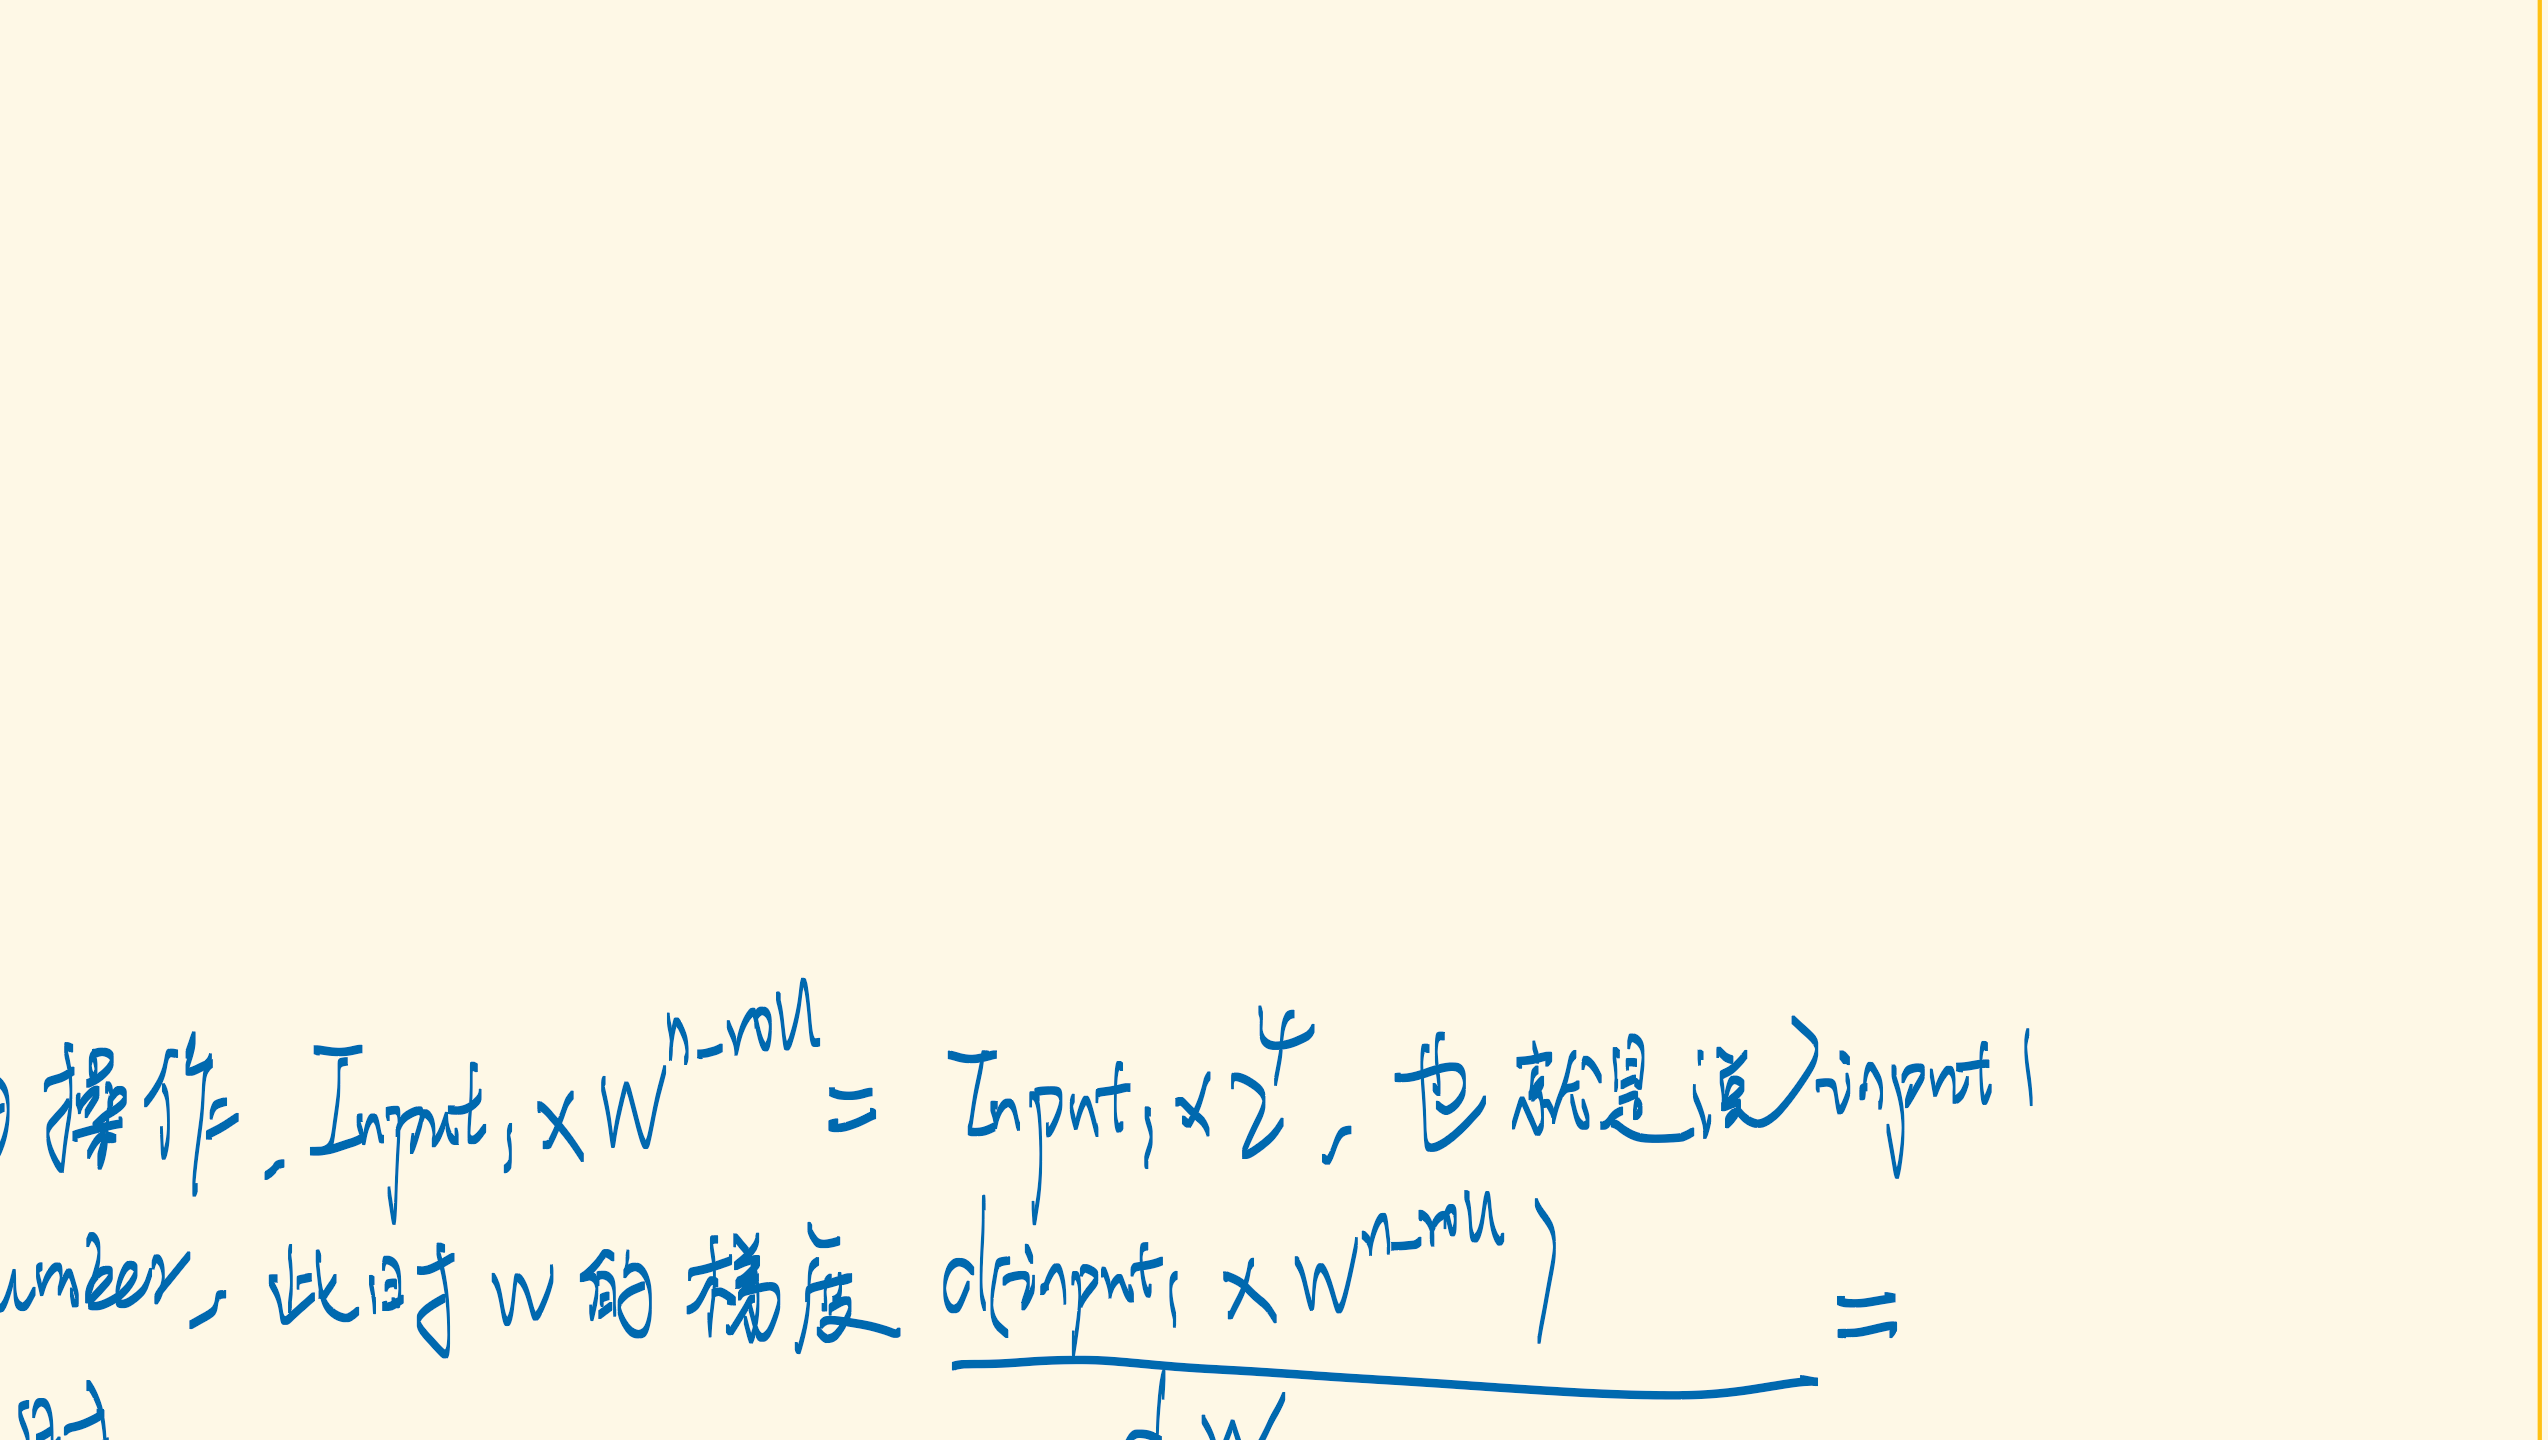 操作, Input₁ × W^{n_roll} = Input₁ × 2^4, 也就是说 input1
umber, 此时 w 的梯度 d(input₁ × w^{n_roll}) =
d W